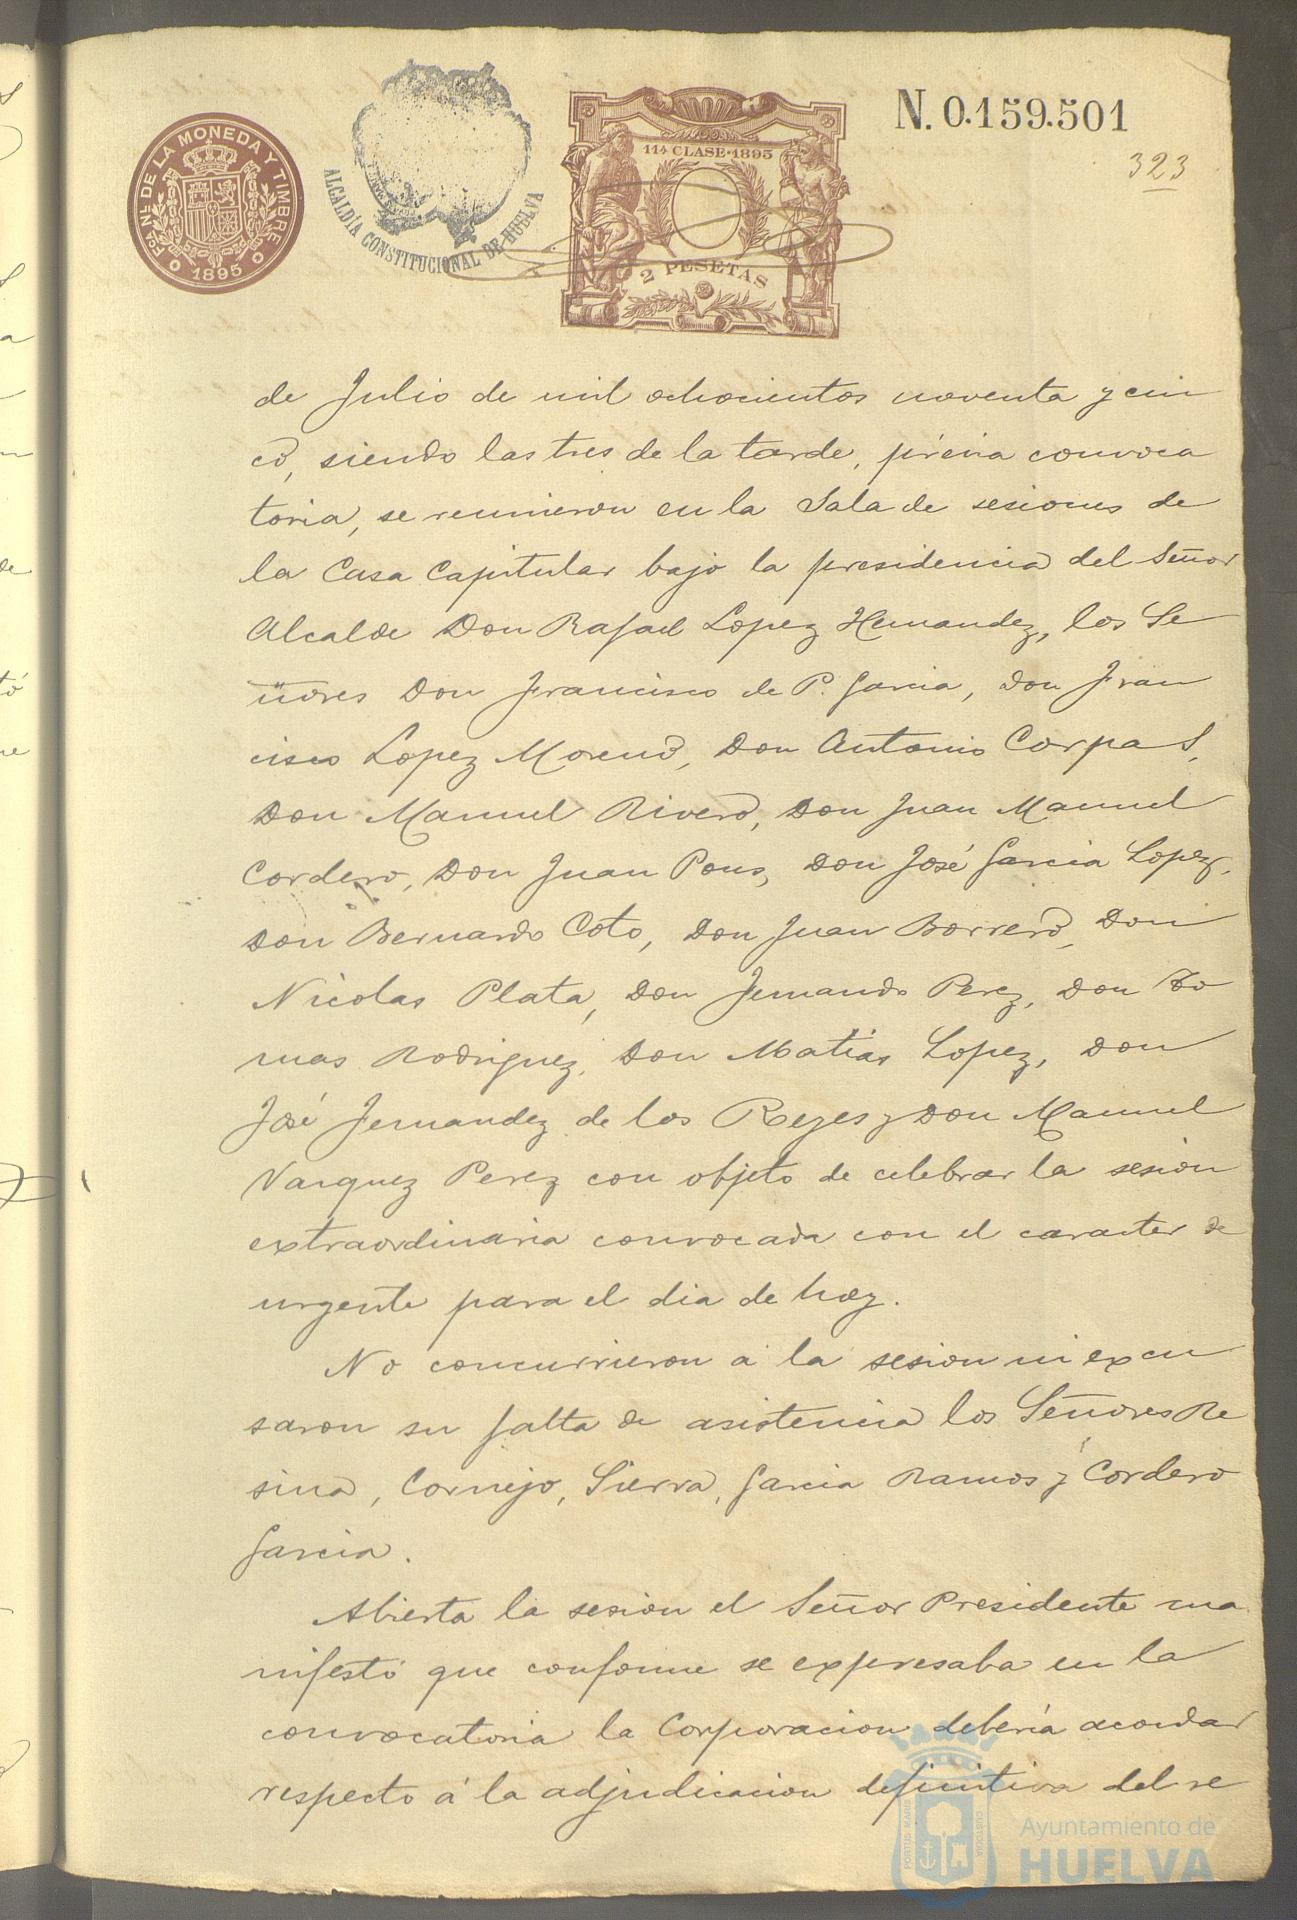 Fca. Nal. DE LA MONEDA Y TIMBRE
1895
ALCALDÍA CONSTITUCIONAL DE HUELVA
11ª CLASE·1895
2 PESETAS
N. 0.159.501
323
de Julio de mil ochocientos noventa y cin
co, siendo las tres de la tarde, prévia convoca
toria, se reunieron en la Sala de sesiones de
la Casa Capitular bajo la presidencia del Señor
Alcalde Don Rafael Lopez Hernandez, los Se
ñores Don Francisco de P. Garcia, Don Fran
cisco Lopez Moreno, Don Antonio Corpas,
Don Manuel Rivero, Don Juan Manuel
Cordero, Don Juan Pons, Don José Garcia Lopez,
Don Bernardo Coto, Don Juan Borrero, Don
Nicolas Plata, Don Fernando Perez, Don To
mas Rodriguez, Don Matias Lopez, Don
José Fernandez de los Reyes y Don Manuel
Vazquez Perez con objeto de celebrar la sesion
extraordinaria convocada con el caracter de
urgente para el dia de hoy.
No concurrieron a la sesion ni excu
saron su falta de asistencia los Señores Re
sina, Cornejo, Sierra, Garcia Ramos y Cordero
Garcia.
Abierta la sesion el Señor Presidente ma
nifestó que conforme se expresaba en la
convocatoria la Corporacion debería acordar
respecto á la adjudicacion definitiva del re
PORTUS MARIS
CUSTODIA
Ayuntamiento de
HUELVA